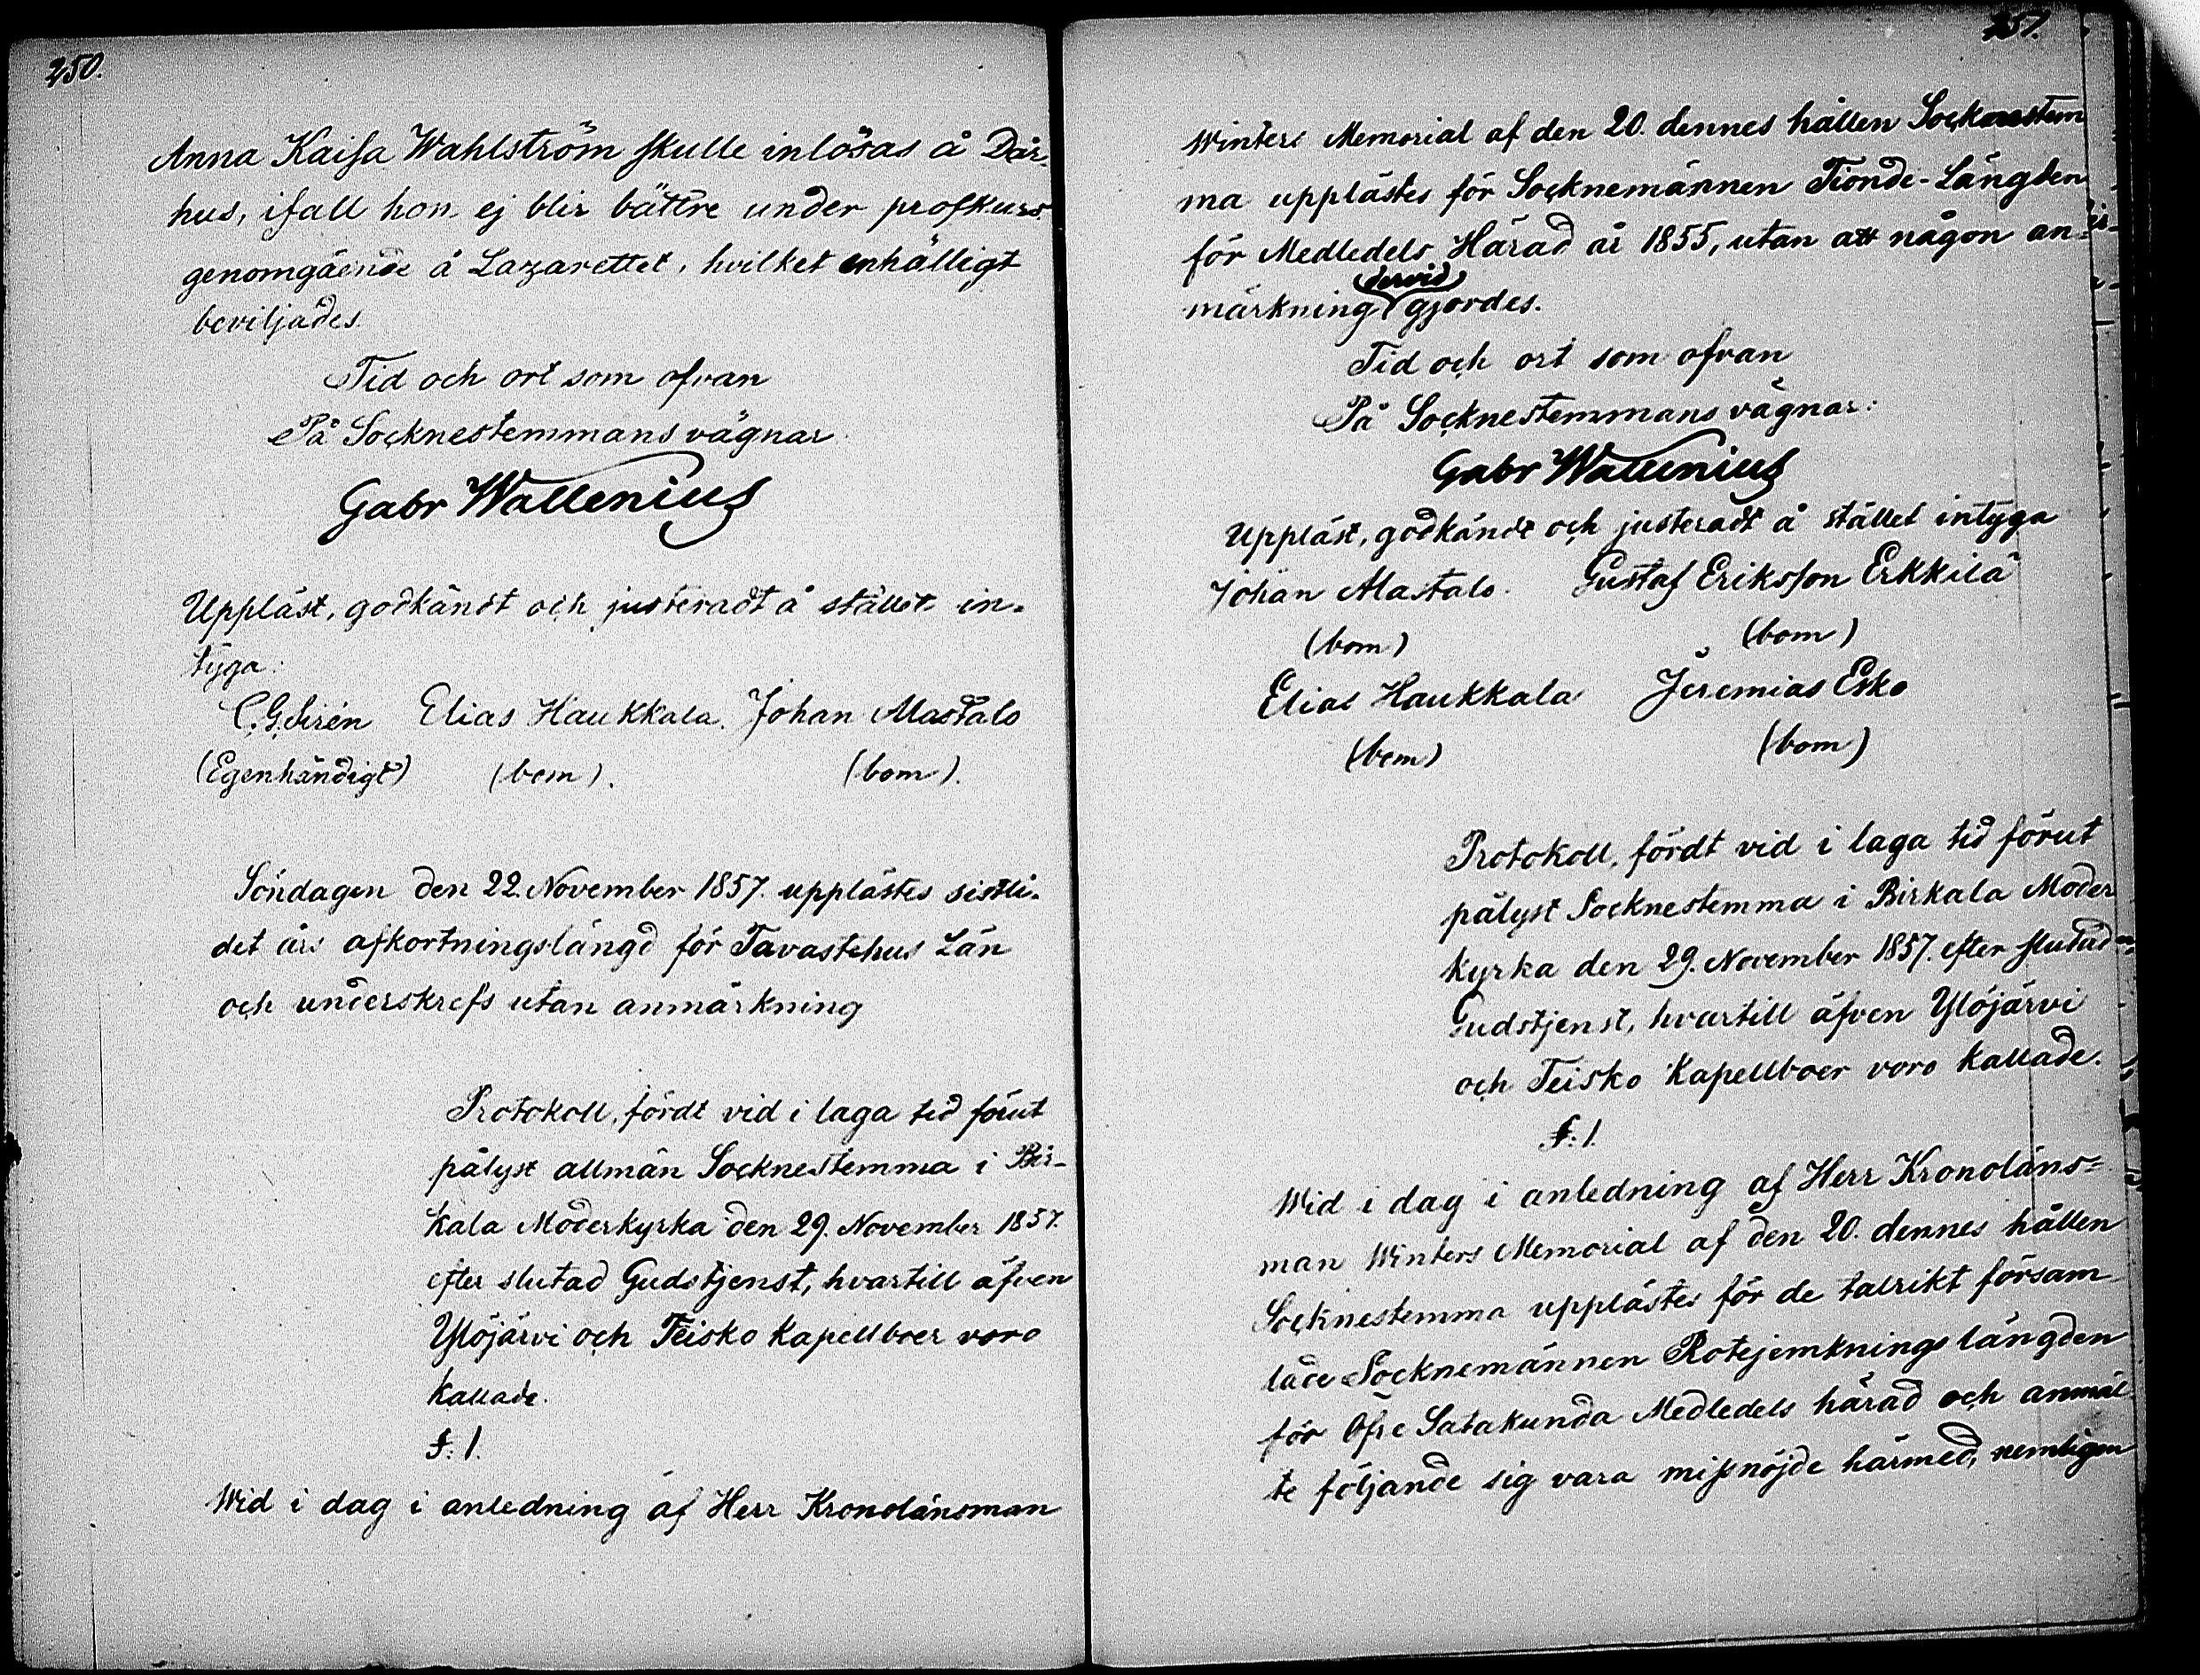 250.
Anna Kaisa Wahlström skulle inlösas å Dår-
hus, ifall hon ej blir bättre under profkurs
genomgående å Lazarettet, hvilket enhälligt
beviljades.
Tid och ort som ofvan
På Socknestemmans vägnar
Gabr Wallenius
Uppläst, godkändt och justeradt å stället in-
tyga:
C. G. Sirén Elias Haukkala. Johan Mastalo
(Egenhändigt) (bom). (bom).
Söndagen den 22. November 1857. upplästes sistli-
det års afkortningslängd för Tavastehus Län
och underskrefs utan anmärkning
Protokoll, fördt vid i laga tid förut
pålyst allmän Socknestemma i Bir-
kala Moderkyrka den 29. November 1857.
efter slutad Gudstjenst, hvartill äfven
Ylöjärvi och Teisko Kapellboer voro
kallade.
§: 1.
Wid i dag i anledning af Herr Kronolänsman
251.
Winters Memorial af den 20. dennes hållen Socknestem
ma upplästes för Socknemännen Tionde-Längden
för Medledels Härad år 1855, utan att någon an-
märkning dervid gjordes.
Tid och ort som ofvan
På Socknestemmans vägnar:
Gabr Wallenius
Uppläst, godkändt och justeradt å stället intyga
Johan Mastalo. Gustaf Eriksson Erkkilä
(bom) (bom)
Elias Haukkala Jeremias Esko
(bom) (bom)
Protokoll, fördt vid i laga tid förut
pålyst Socknestemma i Birkala Moder
kyrka den 29. November 1857. efter slutad
Gudstjenst, hvartill äfven Ylöjärvi
och Teisko Kapellboer voro kallade.
§: 1.
Wid i dag i anledning af Herr Kronoläns-
man Winters Memorial af den 20. dennes hållen
Socknestemma upplästes för de talrikt försam
lade Socknemännen Rotejemknings längden
för Öfre Satakunda Medledels härad och anmäl
te följande sig vara missnöjde härmed, nemligen